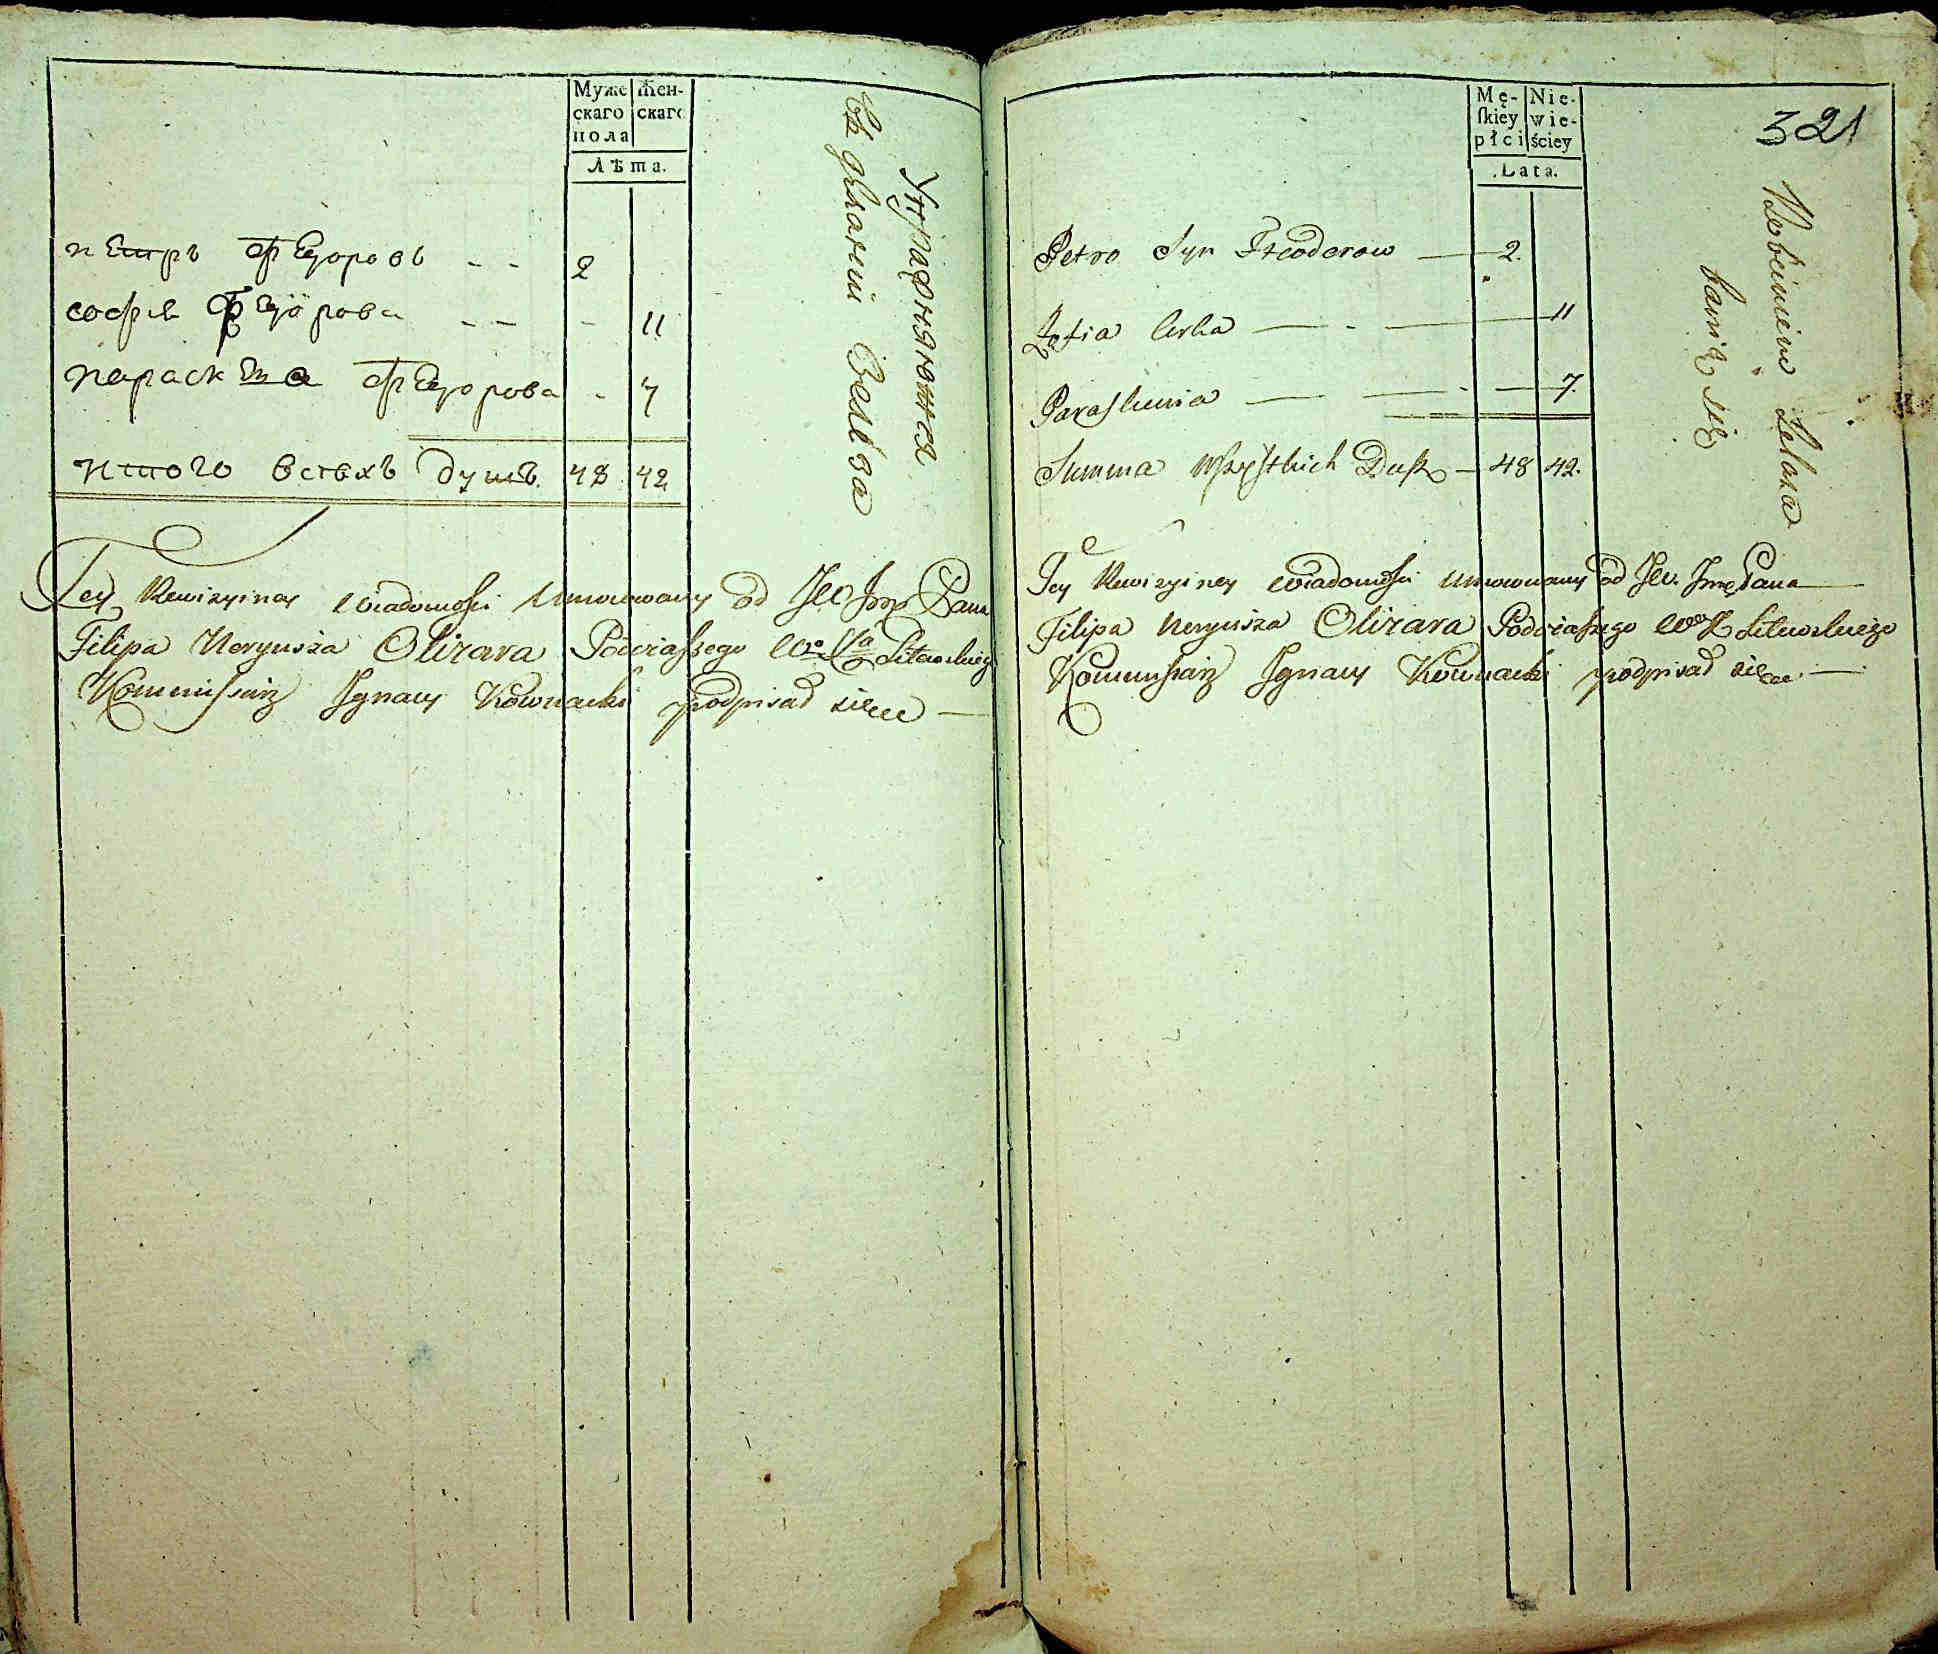 Муже
скаго
пола
Жен-
скаго
Лѣта.
петръ федоровъ - - 2
софия федорова - - - 11
параскева федорова - 7
итого всѣхъ душъ 48 42
въ дѣланіи Желѣза
Упражняются
Tey Rewizyiney wiadomości Umocowany od JW Jmę Pana
Filipa Neryusza Olizara Podczaszego Litewskiego
Kommissarz Ignacy Kownacki podpisał się
Mę-
ſkiey
płci
Nie-
wie-
ściey
Lata.
321
Petro Syn Fteodorow 2.
Zofia Curka 11
Paraskiewia 7.
Summa wszystkich Dusz 48 42.
W robieniem Żelaza
bawią się
Tey Rewizyiney wiadomości umocowany od JW. Jmę Pana
Filipa Neryusza Olizara Podczaszego Litewskiego
Kommissarz Ignacy Kownacki podpisał się